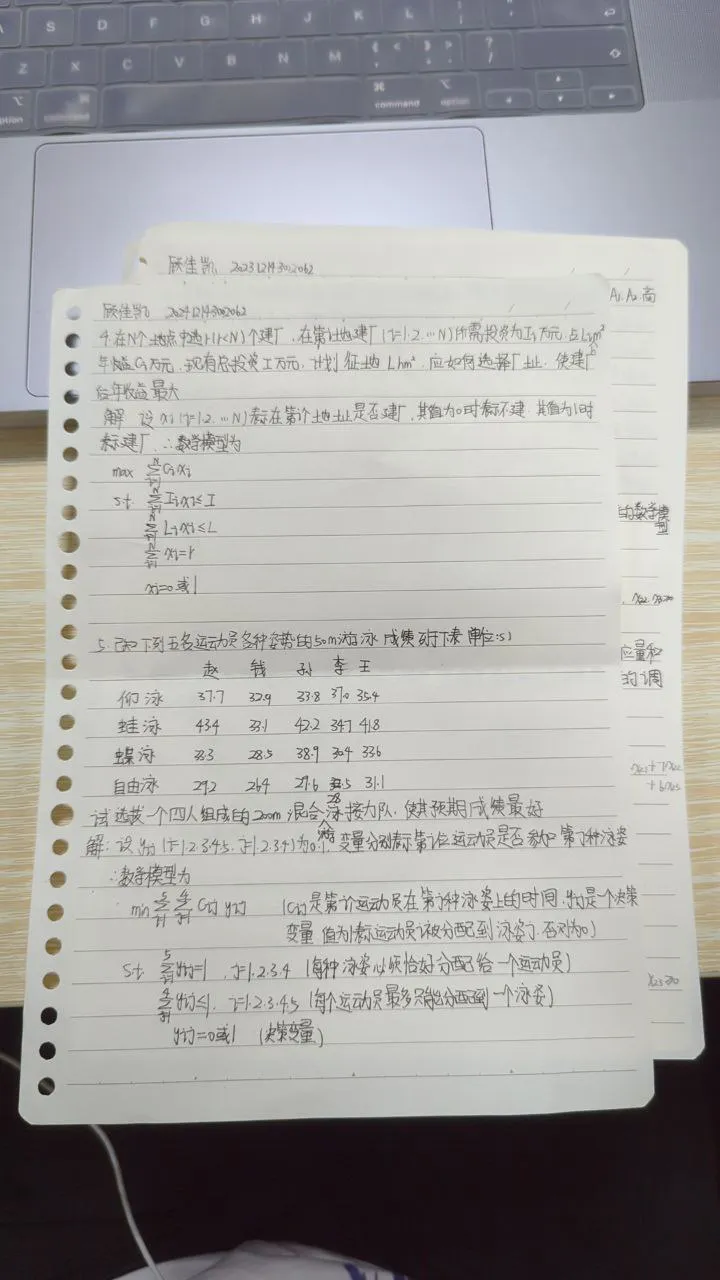 A S D F G H J K L
Z X C V B N M
option command command option
顾佳凯 202312143002062
A₁.A₂.高
的数学模
型
x₂₂.x₂₃≥0
应量和
的调
x₂₁+7x₂₂
+6x₂₃
x₂₃≥0
顾佳凯 202412143002062
4.在N个地点中选r(r<N)个建厂,在第i个地建厂(i=1.2.…N)所需投资为Iᵢ万元,占Lᵢhm²
年收益Cᵢ万元,现有总投资I万元,计划征地Lhm²,应如何选择厂址,使建厂
后年收益最大
解 设xᵢ(i=1.2.…N)表示在第i个地址是否建厂,其值为0时表示不建.其值为1时
表示建厂,∴数学模型为
max ∑ᵢ₌₁ᴺCᵢxᵢ
s.t. ∑ᵢ₌₁ᴺIᵢxᵢ≤I
∑ᵢ₌₁ᴺLᵢxᵢ≤L
∑ᵢ₌₁ᴺxᵢ=r
xᵢ=0或1
5.已知下列五名运动员各种姿势的50m游泳成绩如下表(单位:s)
赵 钱 孙 李 王
仰泳 37.7 32.9 33.8 37.0 35.4
蛙泳 43.4 33.1 42.2 34.7 41.8
蝶泳 33.3 28.5 38.9 30.4 33.6
自由泳 29.2 26.4 29.6 28.5 31.1
试选拔一个四人组成的200m混合泳接力队,使其预期成绩最好
解:设yᵢⱼ(i=1.2.3.4.5,j=1.2.3.4)为0.1变量分别表示第i位运动员是否参加第j种泳姿
∴数学模型为
min ∑ᵢ₌₁⁵∑ⱼ₌₁⁴Cᵢⱼyᵢⱼ (Cᵢⱼ是第i个运动员在第j种泳姿上的时间,yᵢⱼ是个决策
变量 值为1表示运动员i被分配到泳姿j,否则为0)
s.t ∑ᵢ₌₁⁵yᵢⱼ=1,j=1.2.3.4(每种泳姿必须恰好分配给一个运动员)
∑ⱼ₌₁⁴yᵢⱼ≤1,i=1.2.3.4.5(每个运动员最多只能分配到一个泳姿)
yᵢⱼ=0或1 (决策变量)